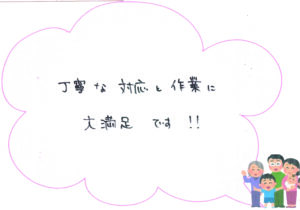 丁寧な対応と作業に
大満足です!!